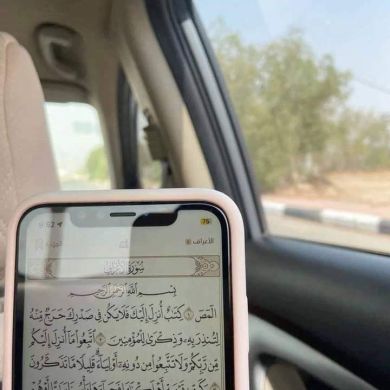 9:52 75
الأعراف الجزء ٨
سُورَةُ الأَعْرَافِ
بِسْمِ اللَّهِ الرَّحْمَٰنِ الرَّحِيمِ
الٓمٓصٓ ١ كِتَٰبٌ أُنزِلَ إِلَيْكَ فَلَا يَكُن فِي صَدْرِكَ حَرَجٌ مِّنْهُ
لِتُنذِرَ بِهِۦ وَذِكْرَىٰ لِلْمُؤْمِنِينَ ٢ ٱتَّبِعُوا۟ مَآ أُنزِلَ إِلَيْكُم
مِّن رَّبِّكُمْ وَلَا تَتَّبِعُوا۟ مِن دُونِهِۦٓ أَوْلِيَآءَ قَلِيلًا مَّا تَذَكَّرُونَ